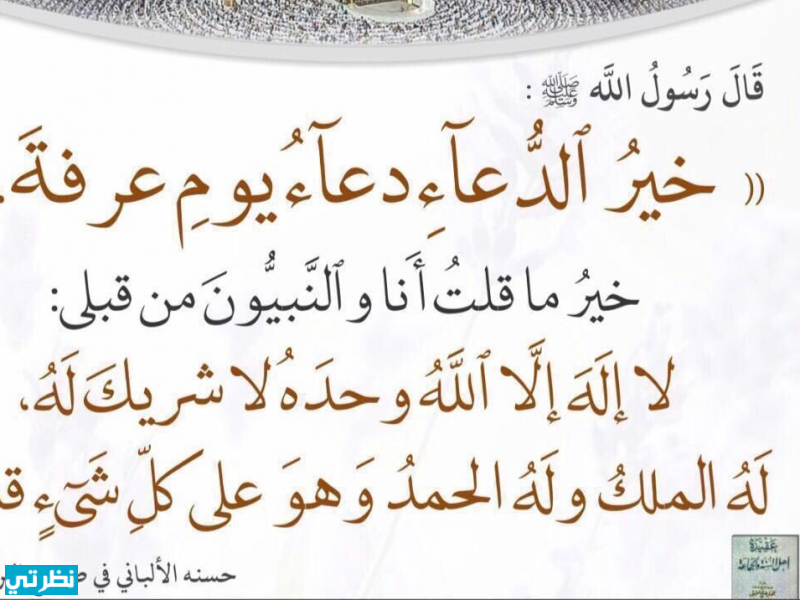 قَالَ رَسُولُ اللَّه ﷺ :
(( خيرُ ٱلدُّعآءِ دعآءُ يومِ عرفةَ.
خيرُ ما قلتُ أَنا وٱلنَّبيُّونَ من قبلى:
لا إلَهَ إلَّا ٱللَّهُ وحدَهُ لا شريكَ لَهُ،
لَهُ الملكُ ولَهُ الحمدُ وَهوَ على كلِّ شَىءٍ
حسنه الألباني في
نظرتي
عقيدة
أهل السنة والجماعة